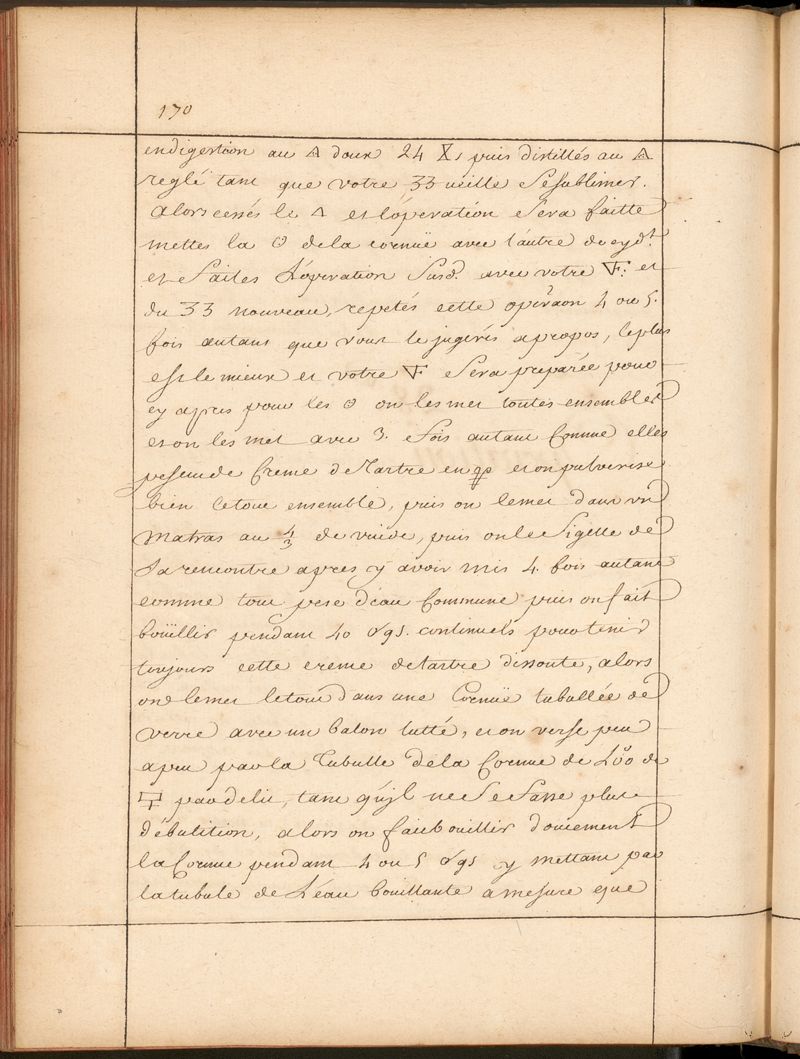 170
endigestion au 🜂 doux 24 X, puis distillés au 🜂
reglé tant que votre 33 veille Sesublimer.
alors cessés le 🜂 et l'óperation Sera faitte
mettes la 🜔 de la cornüe avec l'autre de cy dt.
et faites L'opération Susd. avec votre 🜃: et
du 33 nouveau, repetés cette operãon 4 ou 5.
fois autant que vous le jugerés apropos, le plus
est le mieux et votre 🜃 Sera preparée pour
cy apres pour les 🜔 on les met toutes ensembles
et on les met avec 3. fois autant Comme elles
pesent de Creme de Tartre en et on pulverise
bien letout ensemble, puis on lemet dans un
Matras au 4/3 de vuide, puis on le Sigelle de
Sa rencontre apres y avoir mis 4. fois autant
comme tout pese d'eau Commune puis on fait
boüillir pendant 40 continuels pour tenir
toujours cette creme detartre dissoute, alors
on lemet letout dans une Cornüe tubullée de
verre avec un balon lutté, et on verse peu
apeu par la Tubulle de la Cornue de de
par deliq, tant qu'jl ne Se fasse plus
débulition, alors on fait bouillir doucement
la Cornue pendant 4 ou 5 y mettant par
la tubule de L'éau bouillante à mesure que